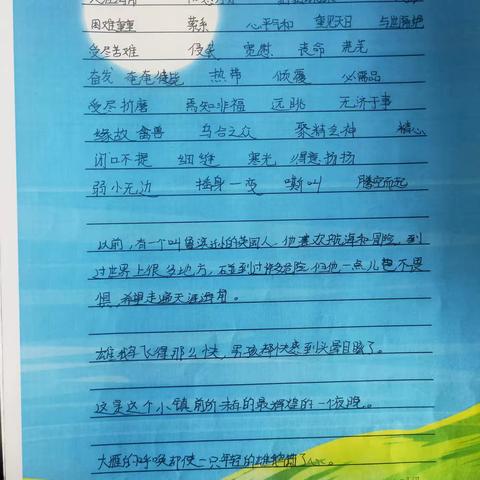 困难重重 萦系 心平气和 重见天日 与世隔绝
受尽苦难 侵袭 宽慰 丧命 荒芜
奋发 奄奄待毙 热带 倾覆 必需品
受尽折磨 焉知非福 远眺 无济于事
缘故 禽兽 乌合之众 聚精会神 精心
闭口不提 细缝 寒光 得意扬扬
弱小无边 摇身一变 嘶叫 腾空而起
以前,有一个叫鲁滨孙的英国人,他喜欢航海和冒险,到
过世界上很多地方,碰到过许多危险,但他一点儿也不畏
惧,希望走遍天涯海角。
雄鹅飞得那么快,男孩都快感到头晕目眩了。
这是这个小镇前所未有的最辉煌的一个夜晚。
大雁的呼唤却使一只年轻的雄鹅